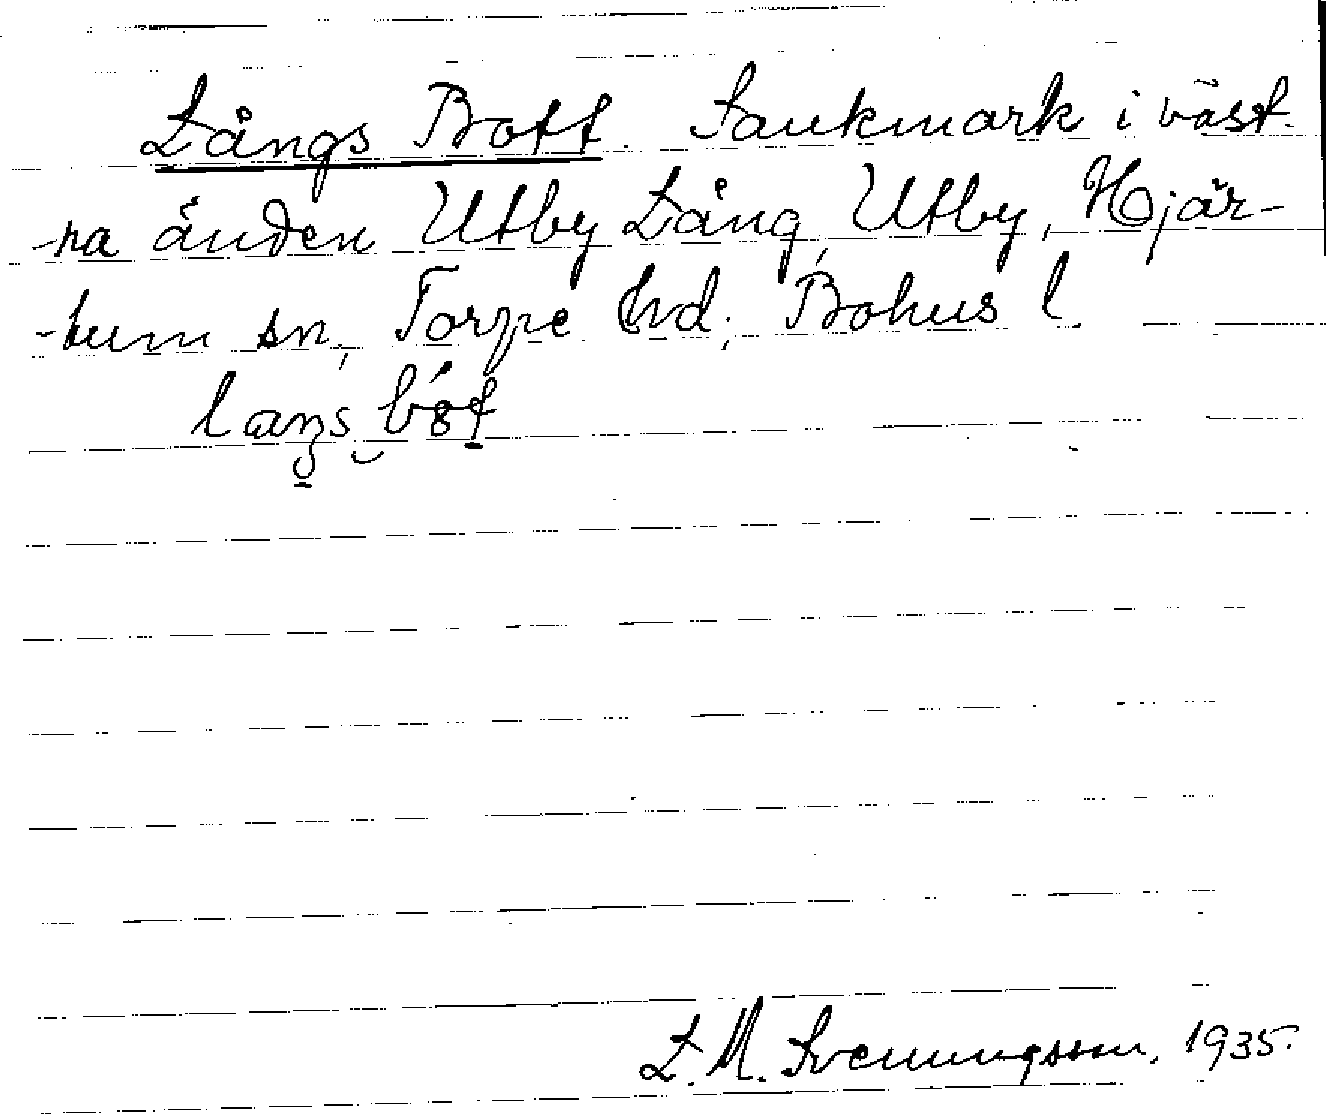 Långs Bott. Sankmark i väst-
-ra änden Utby Lång, Utby, Hjär-
-tum sn, Torpe hd, Bohus l.
L. M. Svenungsson, 1935.